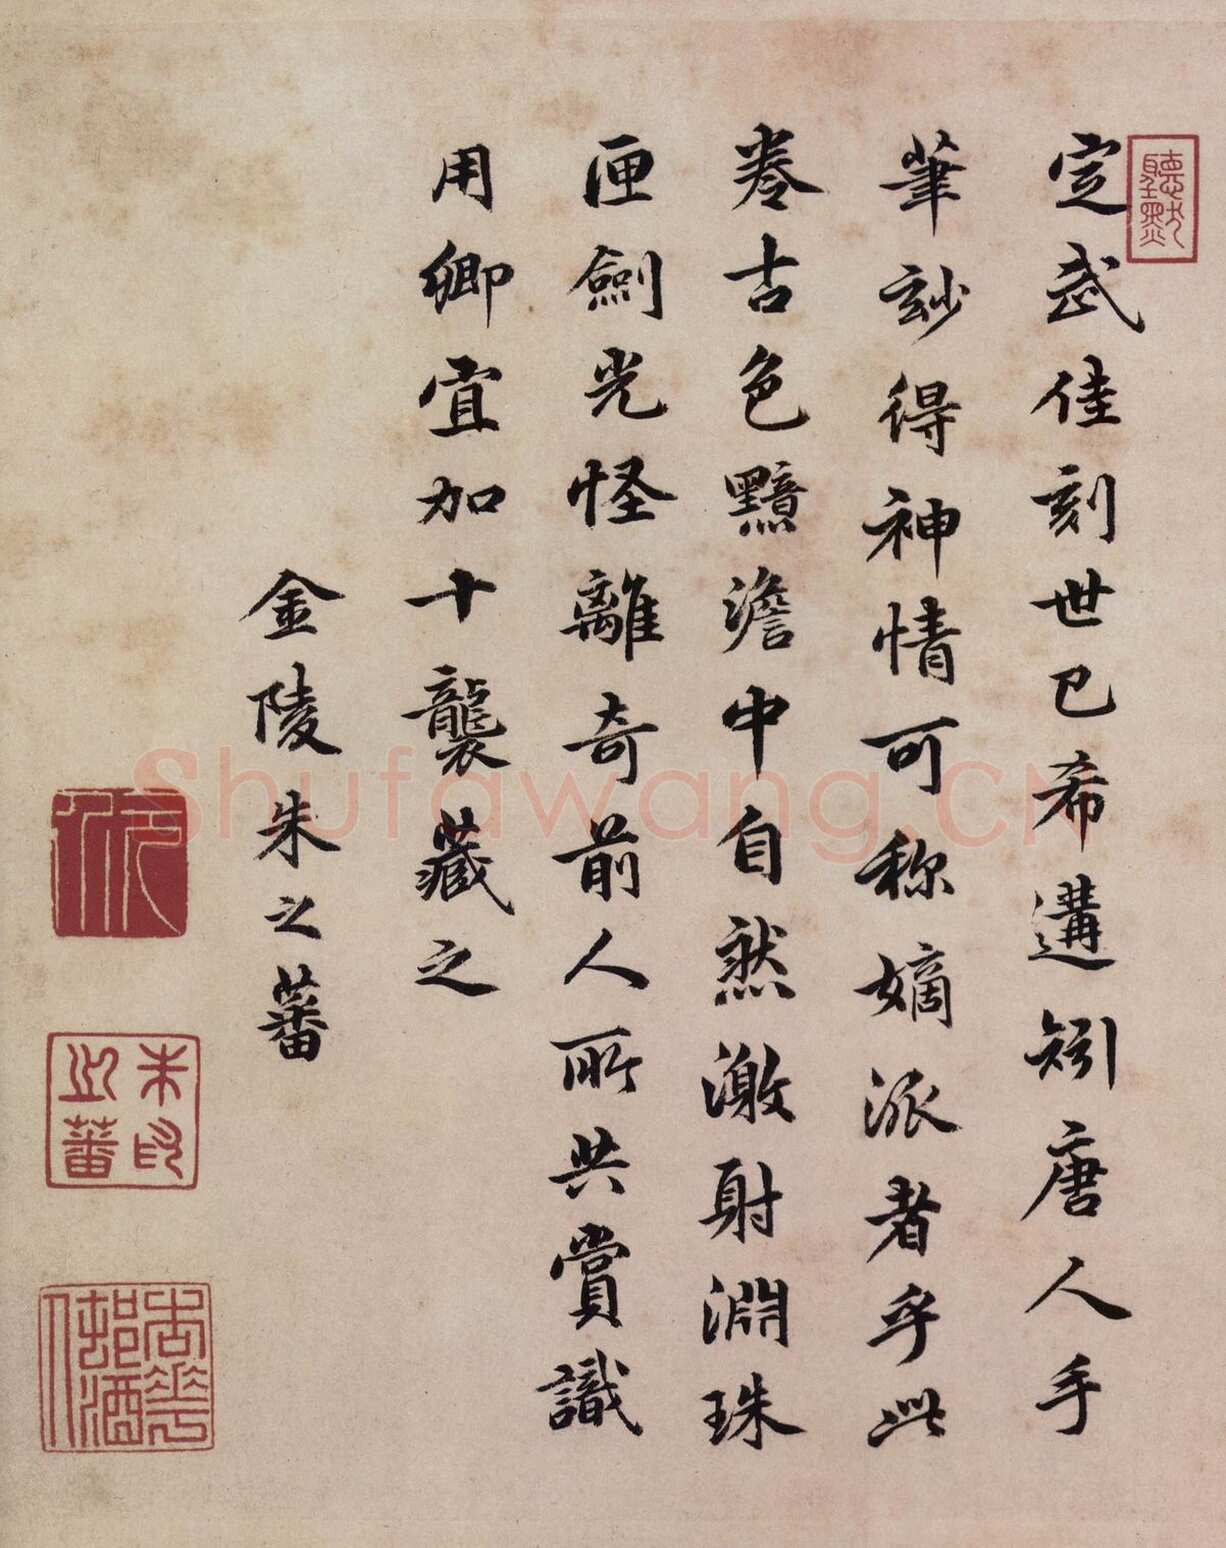 定武佳刻世已希遘矧唐人手
筆玅得神情可稱嫡派者乎此
卷古色黯澹中自然激射淵珠
匣劍光怪離奇前人所共賞識
用卿宜加十襲藏之
金陵朱之蕃
聽默
朱之蕃印
Shufawang.CN